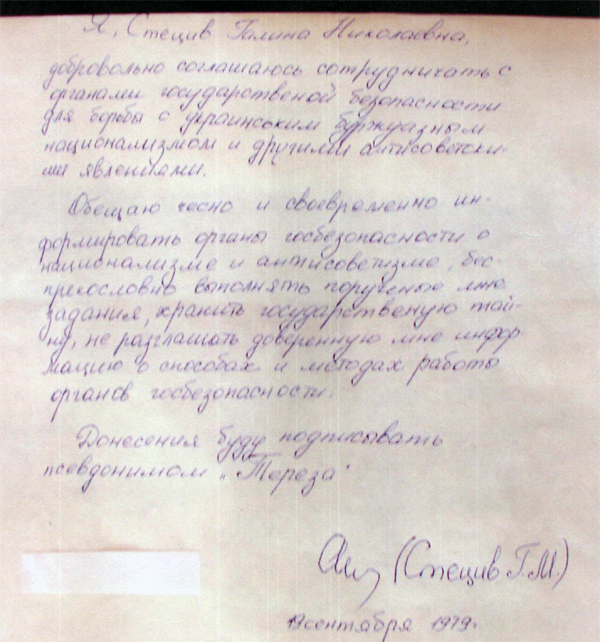 Я, Стецив Галина Николаевна,
добровольно соглашаюсь сотрудничать с
органами государственой безопасности
для борьбы с украинським буржуазным
национализмом и другими антисоветски-
ми явлениями.
Обещаю чесно и своевременно ин-
формировать органы госбезопасности о
национализме и антисоветизме, бес-
прекословно выполнять порученые мне
задания, хранить государственую тай-
ну, не разглашать доверенную мне инфор
мацию о способах и методах работы
органов госбезопасности.
Донесения буду подписывать
псевдонимом „Тереза"
(Стецив Г.М.)
19 сентября 1979г.